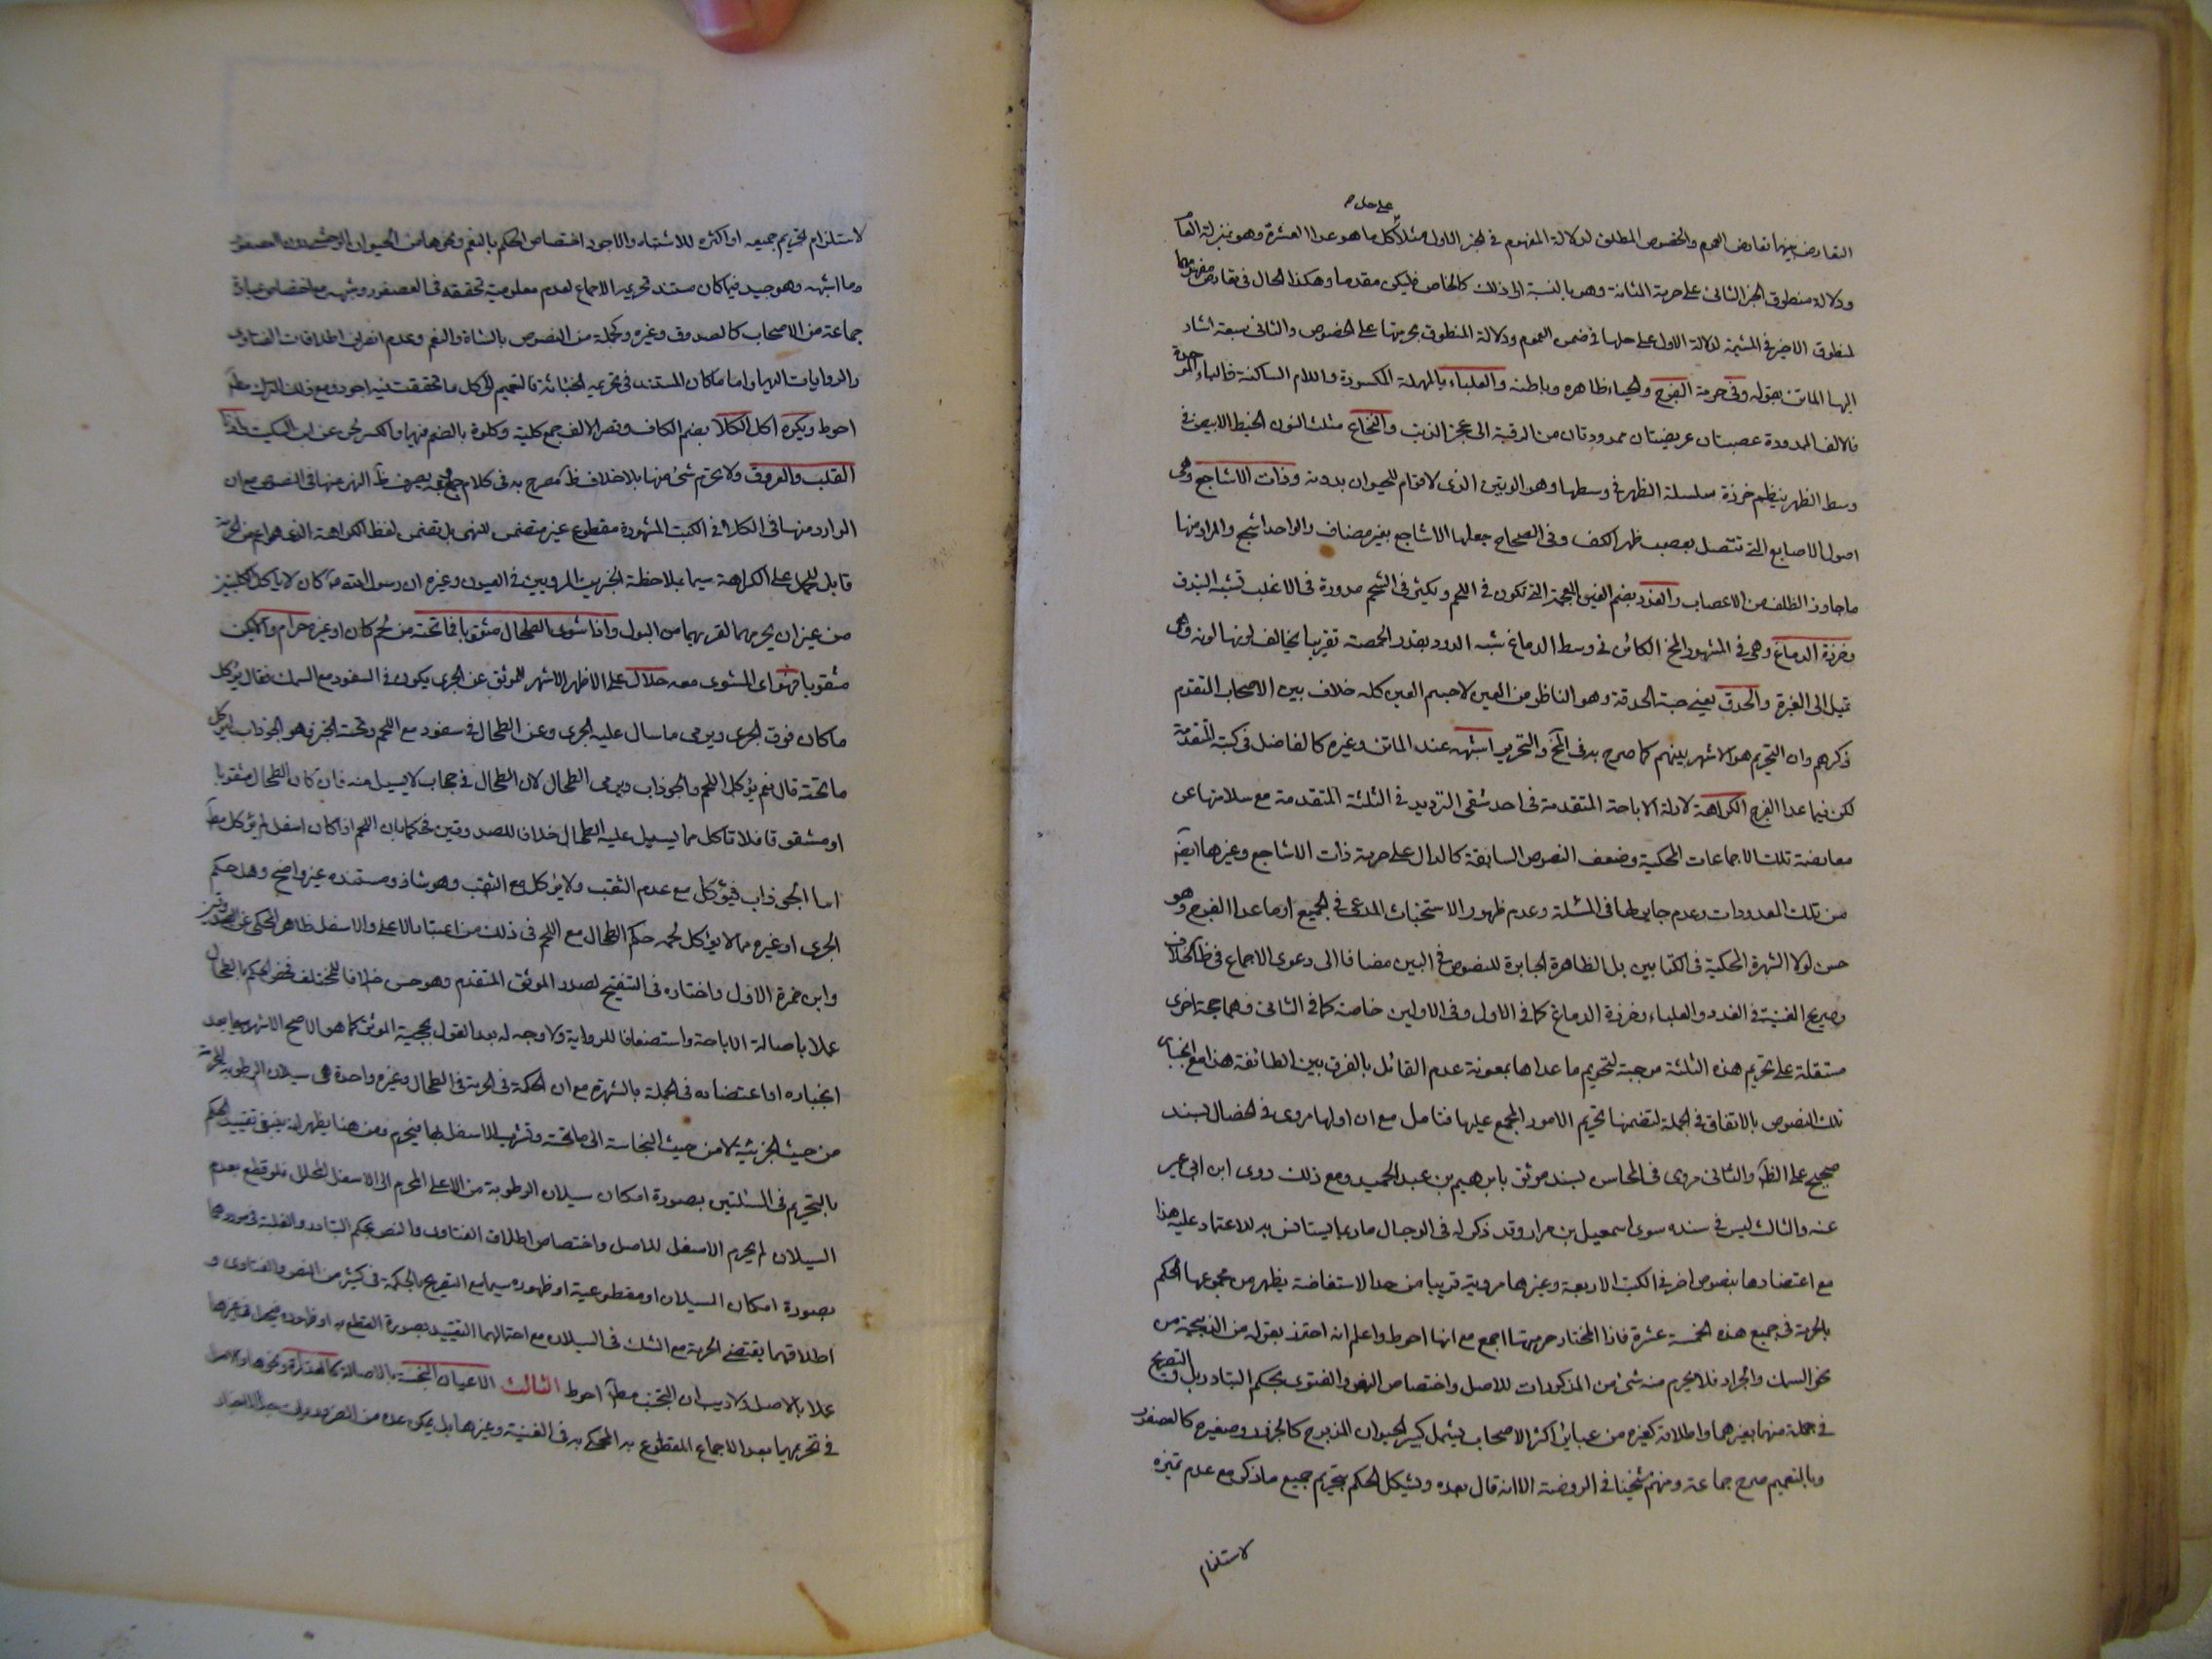 على حل م
التعارض بينها تعارض العموم والخصوص المطلق لدلالة المفهوم في الجزء الاول مثلا كل ما هو عدا العشرة وهو بمنزلة العام
ودلالة منطوق الجزء الثاني على حرمة المثانة وهو بالنسبة الى ذلك كالخاص فليكن مقدما وهكذا الحال في تعارض مفهومهما
لمنطوق الاخير في المشيمة لدلالة الاول على حلها في ضمن العموم ودلالة المنطوق بحرمتها على الخصوص والثاني سبعة اشار
اليها الماتن بقوله وفي حرمة الفرج والحياء ظاهره وباطنه والعلباء بالمهملة المكسورة واللام الساكنة فالباء الموحدة
فالالف الممدودة عصبتان عريضتان ممدودتان من الرقبة الى عجز الذنب والنخاع مثلث النون الخيط الابيض في
وسط الظهر ينظم خرزة سلسلة الظهر في وسطها وهو الوتين الذى لا قوام للحيوان بدونه وذات الاشاجع وهى
اصول الاصابع التى تتصل بعصب ظهر الكف وفى الصحاح جعلها الاشاجع بغير مضاف والواحد اشجع والمراد منها
ما جاوز الظلف من الاعصاب والغدد بضم الغين المعجمة التى تكون في اللحم ويكثر فى الشحم مدورة فى الاغلب تشبه البندق
وخرزة الدماغ وهى في المشهور المخ الكائن في وسط الدماغ شبه الدود بقدر الحمصة تقريبا يخالف لونها لونه وهى
تميل الى الغبرة والحدق يعنى حبة الحدقة وهو الناظر من العين لا جسم العين كله خلاف بين الاصحاب المتقدم
ذكرهم وان التحريم هو الاشهر بينهم كما صرح به فى التحرير اشبهه عند الماتن وغيره كالفاضل فى كتبه المتقدمة
لكن فيما عدا الفرج الكراهة لادلة الاباحة المتقدمة فى احد شقى الترديد في الثلثة المتقدمة مع سلامتها عن
معارضة تلك الاجماعات المحكية وضعف النصوص السابقة كالدال على حرمة ذات الاشاجع وغيرها ايضا
من تلك المعدودات وعدم جابر لها فى المسئلة وعدم ظهور الاستخباث المدعى في الجميع او ما عدا الفرج وهو
حسن لولا الشهرة المحكية فى الكتابين بل الظاهرة الجابرة للنصوص في البين مضافا الى دعوى الاجماع فى ظاهر الخلاف
وصريح الغنية في الغدد والعلباء وخرزة الدماغ كما فى الاول وفى الاولين خاصة كما فى الثانى وهما حجة اخرى
مستقلة على تحريم هذه الثلثة موجبة لتحريم ما عداها بمعونة عدم القائل بالفرق بين الطائفة هذا مع انجبار
تلك النصوص بالاتفاق في الجملة لتضمنها تحريم الامور المجمع عليها فتامل مع ان اولها مروى في الخصال بسند
صحيح على الظاهر والثانى مروى فى المحاسن بسند موثق بابرهيم بن عبد الحميد ومع ذلك روى ابن ابى عمير
عنه والثالث ليس في سنده سوى اسمعيل بن مرار وقد ذكر له فى الرجال ما ربما يستانس به للاعتماد عليه هذا
مع اعتضادها بنصوص اخر في الكتب الاربعة وغيرها مروية قريبا من حد الاستفاضة يظهر من مجموعها الحكم
بالحرمة فى جميع هذه الخمسة عشرة فاذا المختار حرمتها اجمع مع انها احوط واعلم انه احترز بقوله من الذبيحة من
نحو السمك والجراد فلا يحرم منه شئ من المذكورات للاصل واختصاص النص والفتوى بحكم التبادر بل والتصريح
في جملة منها بغيرهما واطلاقه كغيره من عبائر اكثر الاصحاب يشمل كبير الحيوان المذبوح كالجزور وصغيره كالعصفور
وبالتعميم صرح جماعة ومنهم شيخنا فى الروضة الا انه قال بعده ويشكل الحكم بتحريم جميع ما ذكر مع عدم تميزه
لاستلزام
لاستلزام تحريم جميعه او اكثره للاشتباه والاجود اختصاص الحكم بالنعم ونحوها من الحيوان الوحشى دون العصفور
وما اشبهه وهو جيد فيما كان مستند تحريمه الاجماع لعدم معلومية تحققه فى العصفور وشبهه مع اختصاص عبارة
جماعة من الاصحاب كالصدوق وغيره وجملة من النصوص بالشاة والنعم وعدم انصراف اطلاقات الفتاوى
والروايات اليها واما ما كان المستند فى تحريمه الخباثة فالتعميم الى كل ما تحققت فيه اجود ومع ذلك الترك مط
احوط ويكره اكل الكلا بضم الكاف وقصر الالف جمع كلية وكلوة بالضم فيهما والكسر لحن عن ابن السكيت واذنا
القلب والعروق ولا يحرم شئ منها بلا خلاف ظ مصرح به فى كلام جمع وبه يصرف ظ النهى عنها فى النصوص مع ان
الوارد منها فى الكلا فى الكتب المشهورة مقطوع غير متضمن للنهى بل تضمن لفظ الكراهة الذى هو اعم من الحرمة
قابل للحمل على الكراهة سيما بملاحظة الخبرين المرويين في العيون وغيره ان رسول الله ص كان لا ياكل الكليتين
من غير ان يحرمهما لقربهما من البول واذا شوى الطحال مثقوبا فما تحته من لحم كان او غيره حرام والا يكن
مثقوبا فهو اى المشوى معه حلال على الاظهر الاشهر للموثق عن الجرى يكون فى السفود مع السمك فقال يؤكل
ما كان فوق الجرى ويرمى ما سال عليه الجرى وعن الطحال في سفود مع اللحم وتحته الخبز وهو الجوذاب ايؤكل
ما تحته قال نعم يؤكل اللحم والجوذاب ويرمى الطحال لان الطحال في حجاب لا يسيل منه فان كان الطحال مثقوبا
او مشقوقا فلا تاكل مما يسيل عليه الطحال خلافا للصدوقين فحكما بان اللحم اذا كان اسفل لم يؤكل مط
اما الجوذاب فيؤكل مع عدم الثقب ولا يؤكل مع الثقب وهو شاذ ومستنده غير واضح وهل حكم
الجرى او غيره مما لا يؤكل لحمه حكم الطحال مع اللحم فى ذلك من اعتبار الاعلى والاسفل ظاهر المحكى عن الصدوقين
وابن حمزة الاول واختاره فى التنقيح لصدر الموثق المتقدم وهو حسن خلافا للمختلف فخص الحكم بالطحال
عملا باصالة الاباحة واستضعافا للرواية ولا وجه له بعد القول بحجية الموثق كما هو الاصح الاشهر سيما بعد
انجباره او اعتضاده فى الجملة بالشهرة مع ان الحكمة في الحرمة فى الطحال وغيره واحدة هى سيلان الرطوبة المحرمة
من حيث الجزئية لا من حيث النجاسة الى ما تحته وتشرب الاسفل لها فيحرم ومن هنا يظهر انه ينبغى تقييد الحكم
بالتحريم فى المسئلتين بصورة امكان سيلان الرطوبة من الاعلى المحرم الى الاسفل المحلل فلو قطع بعدم
السيلان لم يحرم الاسفل للاصل واختصاص اطلاق الفتاوى والنص بحكم التبادر والغلبة فى موردهما
بصورة امكان السيلان او مقطوعيته او ظهوره سيما مع التصريح بالحكمة فى كثير من النصوص والفتاوى و
اطلاقهما يقتضى الحرمة مع الشك فى السيلان مع احتمالهما التقييد بصورة القطع به او ظهوره فيحل فى غيرها
عملا بالاصل ولا ريب ان التجنب مط احوط الثالث الاعيان النجسة بالاصالة كالعذرة ونحوها
في تحريمها بعد الاجماع المقطوع به المحكى به فى الغنية وغيرها بل يمكن عده من الضرورى